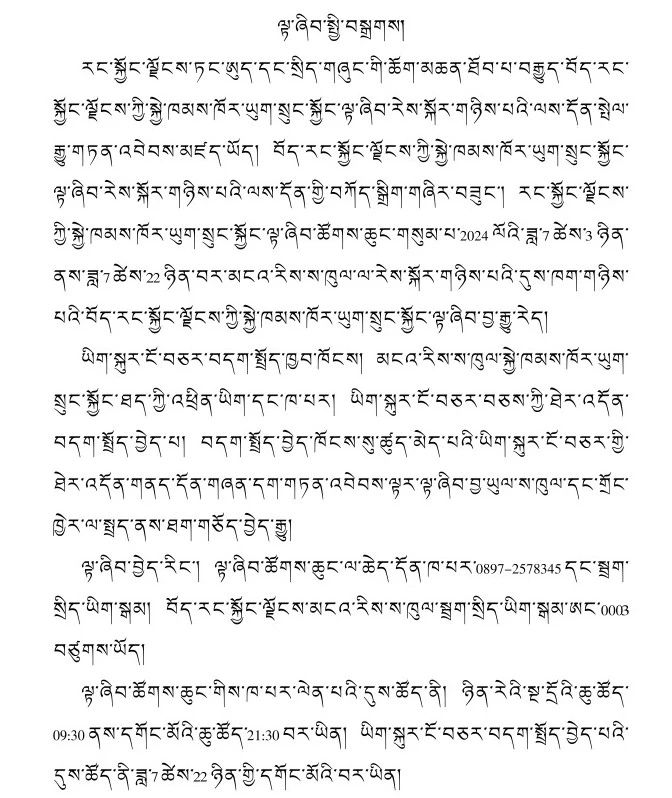 ལྟ་ཞིབ་སྤྱི་བསྒྲགས།
རང་སྐྱོང་ལྗོངས་ཏང་ཨུད་དང་སྲིད་གཞུང་གི་ཆོག་མཆན་ཐོབ་པ་བརྒྱུད་བོད་རང་
སྐྱོང་ལྗོངས་ཀྱི་སྐྱེ་ཁམས་ཁོར་ཡུག་སྲུང་སྐྱོང་ལྟ་ཞིབ་རེས་སྐོར་གཉིས་པའི་ལས་དོན་སྤེལ་
རྒྱུ་གཏན་འབེབས་མཛད་ཡོད། བོད་རང་སྐྱོང་ལྗོངས་ཀྱི་སྐྱེ་ཁམས་ཁོར་ཡུག་སྲུང་སྐྱོང་
ལྟ་ཞིབ་རེས་སྐོར་གཉིས་པའི་ལས་དོན་གྱི་བཀོད་སྒྲིག་གཞིར་བཟུང་། རང་སྐྱོང་ལྗོངས་
ཀྱི་སྐྱེ་ཁམས་ཁོར་ཡུག་སྲུང་སྐྱོང་ལྟ་ཞིབ་ཚོགས་ཆུང་གསུམ་པ་2024 ལོའི་ཟླ་7 ཚེས་3 ཉིན་
ནས་ཟླ་7 ཚེས་22 ཉིན་བར་མངའ་རིས་ས་ཁུལ་ལ་རེས་སྐོར་གཉིས་པའི་དུས་ཁག་གཉིས་
པའི་བོད་རང་སྐྱོང་ལྗོངས་ཀྱི་སྐྱེ་ཁམས་ཁོར་ཡུག་སྲུང་སྐྱོང་ལྟ་ཞིབ་བྱ་རྒྱུ་རེད།
ཡིག་སྐུར་ངོ་བཅར་བདག་སྤྲོད་ཁྱབ་ཁོངས། མངའ་རིས་ས་ཁུལ་སྐྱེ་ཁམས་ཁོར་ཡུག་
སྲུང་སྐྱོང་ཐད་ཀྱི་འཕྲིན་ཡིག་དང་ཁ་པར། ཡིག་སྐུར་ངོ་བཅར་བཅས་ཀྱི་ཐེར་འདོན་
བདག་སྤྲོད་བྱེད་པ། བདག་སྤྲོད་བྱེད་ཁོངས་སུ་ཚུད་མེད་པའི་ཡིག་སྐུར་ངོ་བཅར་གྱི་
ཐེར་འདོན་གནད་དོན་གཞན་དག་གཏན་འབེབས་ལྟར་ལྟ་ཞིབ་བྱ་ཡུལ་ས་ཁུལ་དང་གྲོང་
ཁྱེར་ལ་སྤྲད་ནས་ཐག་གཅོད་བྱེད་རྒྱུ།
ལྟ་ཞིབ་བྱེད་རིང་། ལྟ་ཞིབ་ཚོགས་ཆུང་ལ་ཆེད་དོན་ཁ་པར་0897-2578345 དང་སྦྲག་
སྲིད་ཡིག་སྒམ། བོད་རང་སྐྱོང་ལྗོངས་མངའ་རིས་ས་ཁུལ་སྦྲག་སྲིད་ཡིག་སྒམ་ཨང་0003
བཙུགས་ཡོད།
ལྟ་ཞིབ་ཚོགས་ཆུང་གིས་ཁ་པར་ལེན་པའི་དུས་ཚོད་ནི། ཉིན་རེའི་སྔ་དྲོའི་ཆུ་ཚོད་
09:30 ནས་དགོང་མོའི་ཆུ་ཚོད་21:30 བར་ཡིན། ཡིག་སྐུར་ངོ་བཅར་བདག་སྤྲོད་བྱེད་པའི་
དུས་ཚོད་ནི་ཟླ་7 ཚེས་22 ཉིན་གྱི་དགོང་མོའི་བར་ཡིན།